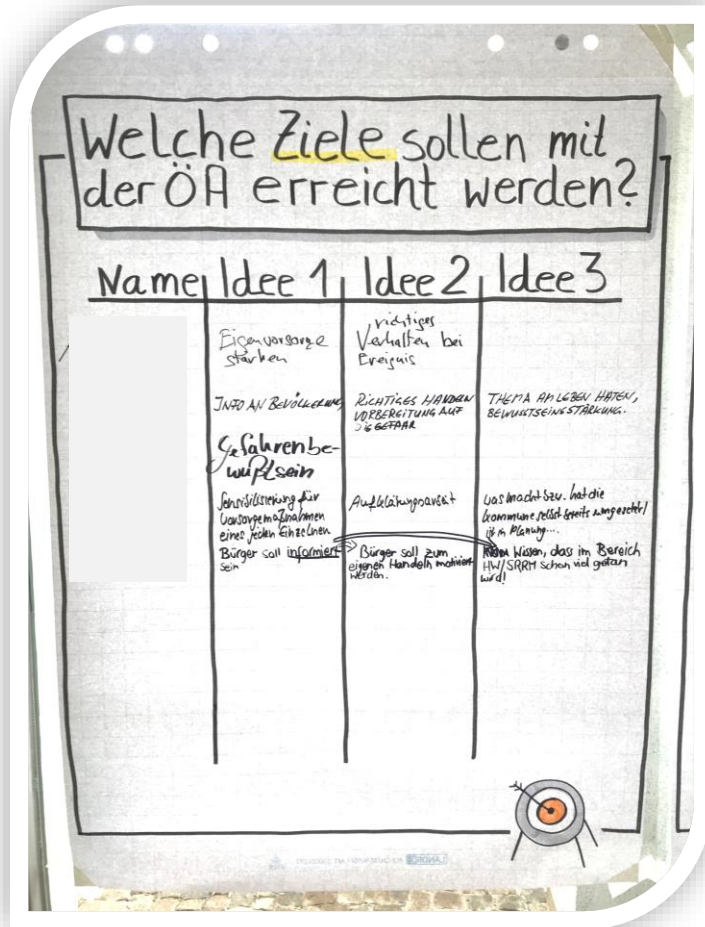 Welche Ziele sollen mit
der ÖA erreicht werden?
Name Idee 1 Idee 2 Idee 3
Eigenvorsorge
stärken
richtiges
Verhalten bei
Ereignis
INFO AN BEVÖLKERUNG
RICHTIGES HANDELN
VORBEREITUNG AUF
DIE GEFAAR
THEMA AM LEBEN HATEN,
BEWUSSTSEINSSTÄRKUNG.
Gefahrenbe-
wußtsein
Sensibilisierung für
Vorsorgemaßnahmen
eines jeden Einzelnen
Aufklärungsarbeit
was macht bzw. hat die
Kommune selbst bereits umgesetzt/
ist in Planung...
Bürger soll informiert
sein
Bürger soll zum
eigenen Handeln motiviert
werden.
Wissen, dass im Bereich
HW/SRRM schon viel getan
wird!
LANDRÉ